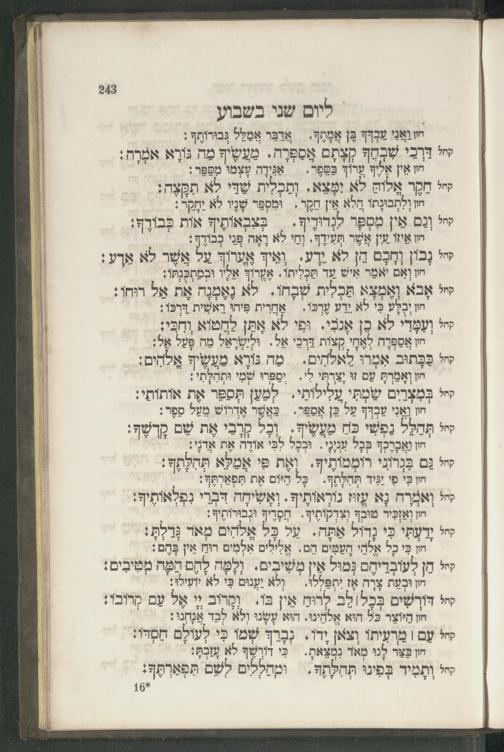 243
ליום שני בשבוע
חזן וַאֲנִי עַבְדְּךָ בֶּן אֲמָתֶךָ. אֲדַבֵּר אֲמַלֵּל גְּבוּרוֹתֶיךָ:
קהל דַּרְכֵי שִׁבְחֲךָ קְצָתָם אֲסַפְּרָה. מַעֲשֶׂיךָ מַה נּוֹרָא אֹמְרָה:
חזן אֵין אֵלֶיךָ עֲרוֹךְ בַּסֵּפֶר. אַגִּידָה עָצְמוּ מִסַּפֵּר:
קהל חֵקֶר אֱלוֹהַּ לֹא יִמָּצֵא. וְתַכְלִית שַׁדַּי לֹא תִקָּצֶה:
חזן וְלִתְבוּנָתוֹ הֲלֹא אֵין חֵקֶר. וּמִסְפַּר שָׁנָיו לֹא יֵחָקֵר:
קהל וְגַם אֵין מִסְפָּר לִגְדוּדֶיךָ. בְּצִבְאוֹתֶיךָ אוֹת כְּבוֹדֶךָ:
חזן אֵיזוֹ עַיִן אֲשֶׁר תְּעִידֶךָ. וְחַי לֹא רָאָה פְּנֵי כְבוֹדֶךָ:
קהל נָבוֹן וְחָכָם הֵן לֹא יֵדַע. וְאֵיךְ אֶעֱרוֹךְ עַל אֲשֶׁר לֹא אֵדָע:
חזן וְאִם יֹאמַר אִישׁ עַד תַּכְלִיתוֹ. אֶעֱרוֹךְ אֵלָיו וּבְמַתְכֻּנְתּוֹ:
קהל אָבֹא וְאֶמְצָא תַּכְלִית שִׁבְחוֹ. לֹא נֶאֶמְנָה אֶת אֵל רוּחוֹ:
חזן יְבֻלַּע כִּי לֹא יֵדַע עֶרְכּוֹ. אַחֲרִית פִּיהוּ רֵאשִׁית דַּרְכּוֹ:
קהל וְעִמָּדִי לֹא כֵן אָנֹכִי. וּפִי לֹא אֶתֵּן לַחֲטוֹא וְחִכִּי:
חזן אֲסַפְּרָה לְאֶחָי קְצוֹת דַּרְכֵי אֵל. וּלְיִשְׂרָאֵל מַה פָּעַל אֵל:
קהל כַּכָּתוּב אִמְרוּ לֵאלֹהִים. מַה נּוֹרָא מַעֲשֶׂיךָ אֱלֹהִים:
חזן וְאָמַרְתָּ עַם זוּ יָצַרְתִּי לִי. יְסַפְּרוּ שְׁמִי וּתְהִלָּתִי:
קהל בְּמִצְרַיִם שַׂמְתִּי עֲלִילוֹתַי. לְמַעַן תְּסַפֵּר אֶת אוֹתוֹתַי:
חזן וַאֲנִי עַבְדְּךָ עַל כֵּן אֲסַפֵּר. כַּאֲשֶׁר אֶדְרוֹשׁ מֵעַל סֵפֶר:
קהל תְּהַלֵּל נַפְשִׁי כֹּחַ מַעֲשֶׂיךָ. וְכָל קְרָבַי אֶת שֵׁם קָדְשֶׁךָ:
חזן וַאֲבָרֶכְךָ בְּכָל עִנְיָנַי. וּבְכָל לִבִּי אוֹדֶה אֶת אֲדֹנָי:
קהל גַּם בִּגְרוֹנִי רוֹמְמוֹתֶיךָ. וְאֶת פִּי אֲמַלֵּא תְּהִלָּתֶךָ:
חזן כִּי פִי יַגִּיד תְּהִלָּתֶךָ. כָּל הַיּוֹם אֶת תִּפְאַרְתֶּךָ:
קהל וְאֹמְרָה נָא עֱזוּז נוֹרְאוֹתֶיךָ. וְאָשִׂיחָה דִּבְרֵי נִפְלְאוֹתֶיךָ:
חזן וְאַזְכִּיר טוּבְךָ וְצִדְקוֹתֶיךָ. חֲסָדֶיךָ וּגְבוּרוֹתֶיךָ:
קהל יָדַעְתִּי כִּי גָדוֹל אַתָּה. עַל כָּל אֱלֹהִים מְאֹד גָּדַלְתָּ:
חזן כִּי כָל אֱלֹהֵי הָעַמִּים הֵם. אֱלִילִים אִלְּמִים רוּחַ אֵין בָּהֶם:
קהל הֵן לְעוֹבְדֵיהֶם גְּמוּל אֵין מְשִׁיבִים. וְלָמָּה לָהֶם הֵמָּה מְטִיבִים:
חזן וּבְעֵת צָרָה אָז יִתְפַּלְלוּ. וְלֹא יַעֲנוּם כִּי לֹא יוֹעִילוּ:
קהל דּוֹרְשִׁים בְּכָל לֵב לְרוּחַ אֵין בּוֹ. וְקָרוֹב יְיָ אֶל עַם קְרוֹבוֹ:
חזן הַיּוֹצֵר כֹּל הוּא אֱלֹהֵינוּ. הוּא עָשָׂנוּ וְלֹא לְבַד אֲנָחְנוּ:
קהל עַם | מַרְעִיתוֹ וְצֹאן יָדוֹ. נְבָרֵךְ שְׁמוֹ כִּי לְעוֹלָם חַסְדּוֹ:
חזן בַּצַּר לָנוּ מְאֹד נִמְצֵאתָ. כִּי דוֹרְשֶׁיךָ לֹא עָזַבְתָּ:
קהל וְתָמִיד בְּפִינוּ תְּהִלָּתֶךָ. וּמְהַלְלִים לְשֵׁם תִּפְאַרְתֶּךָ:
16*